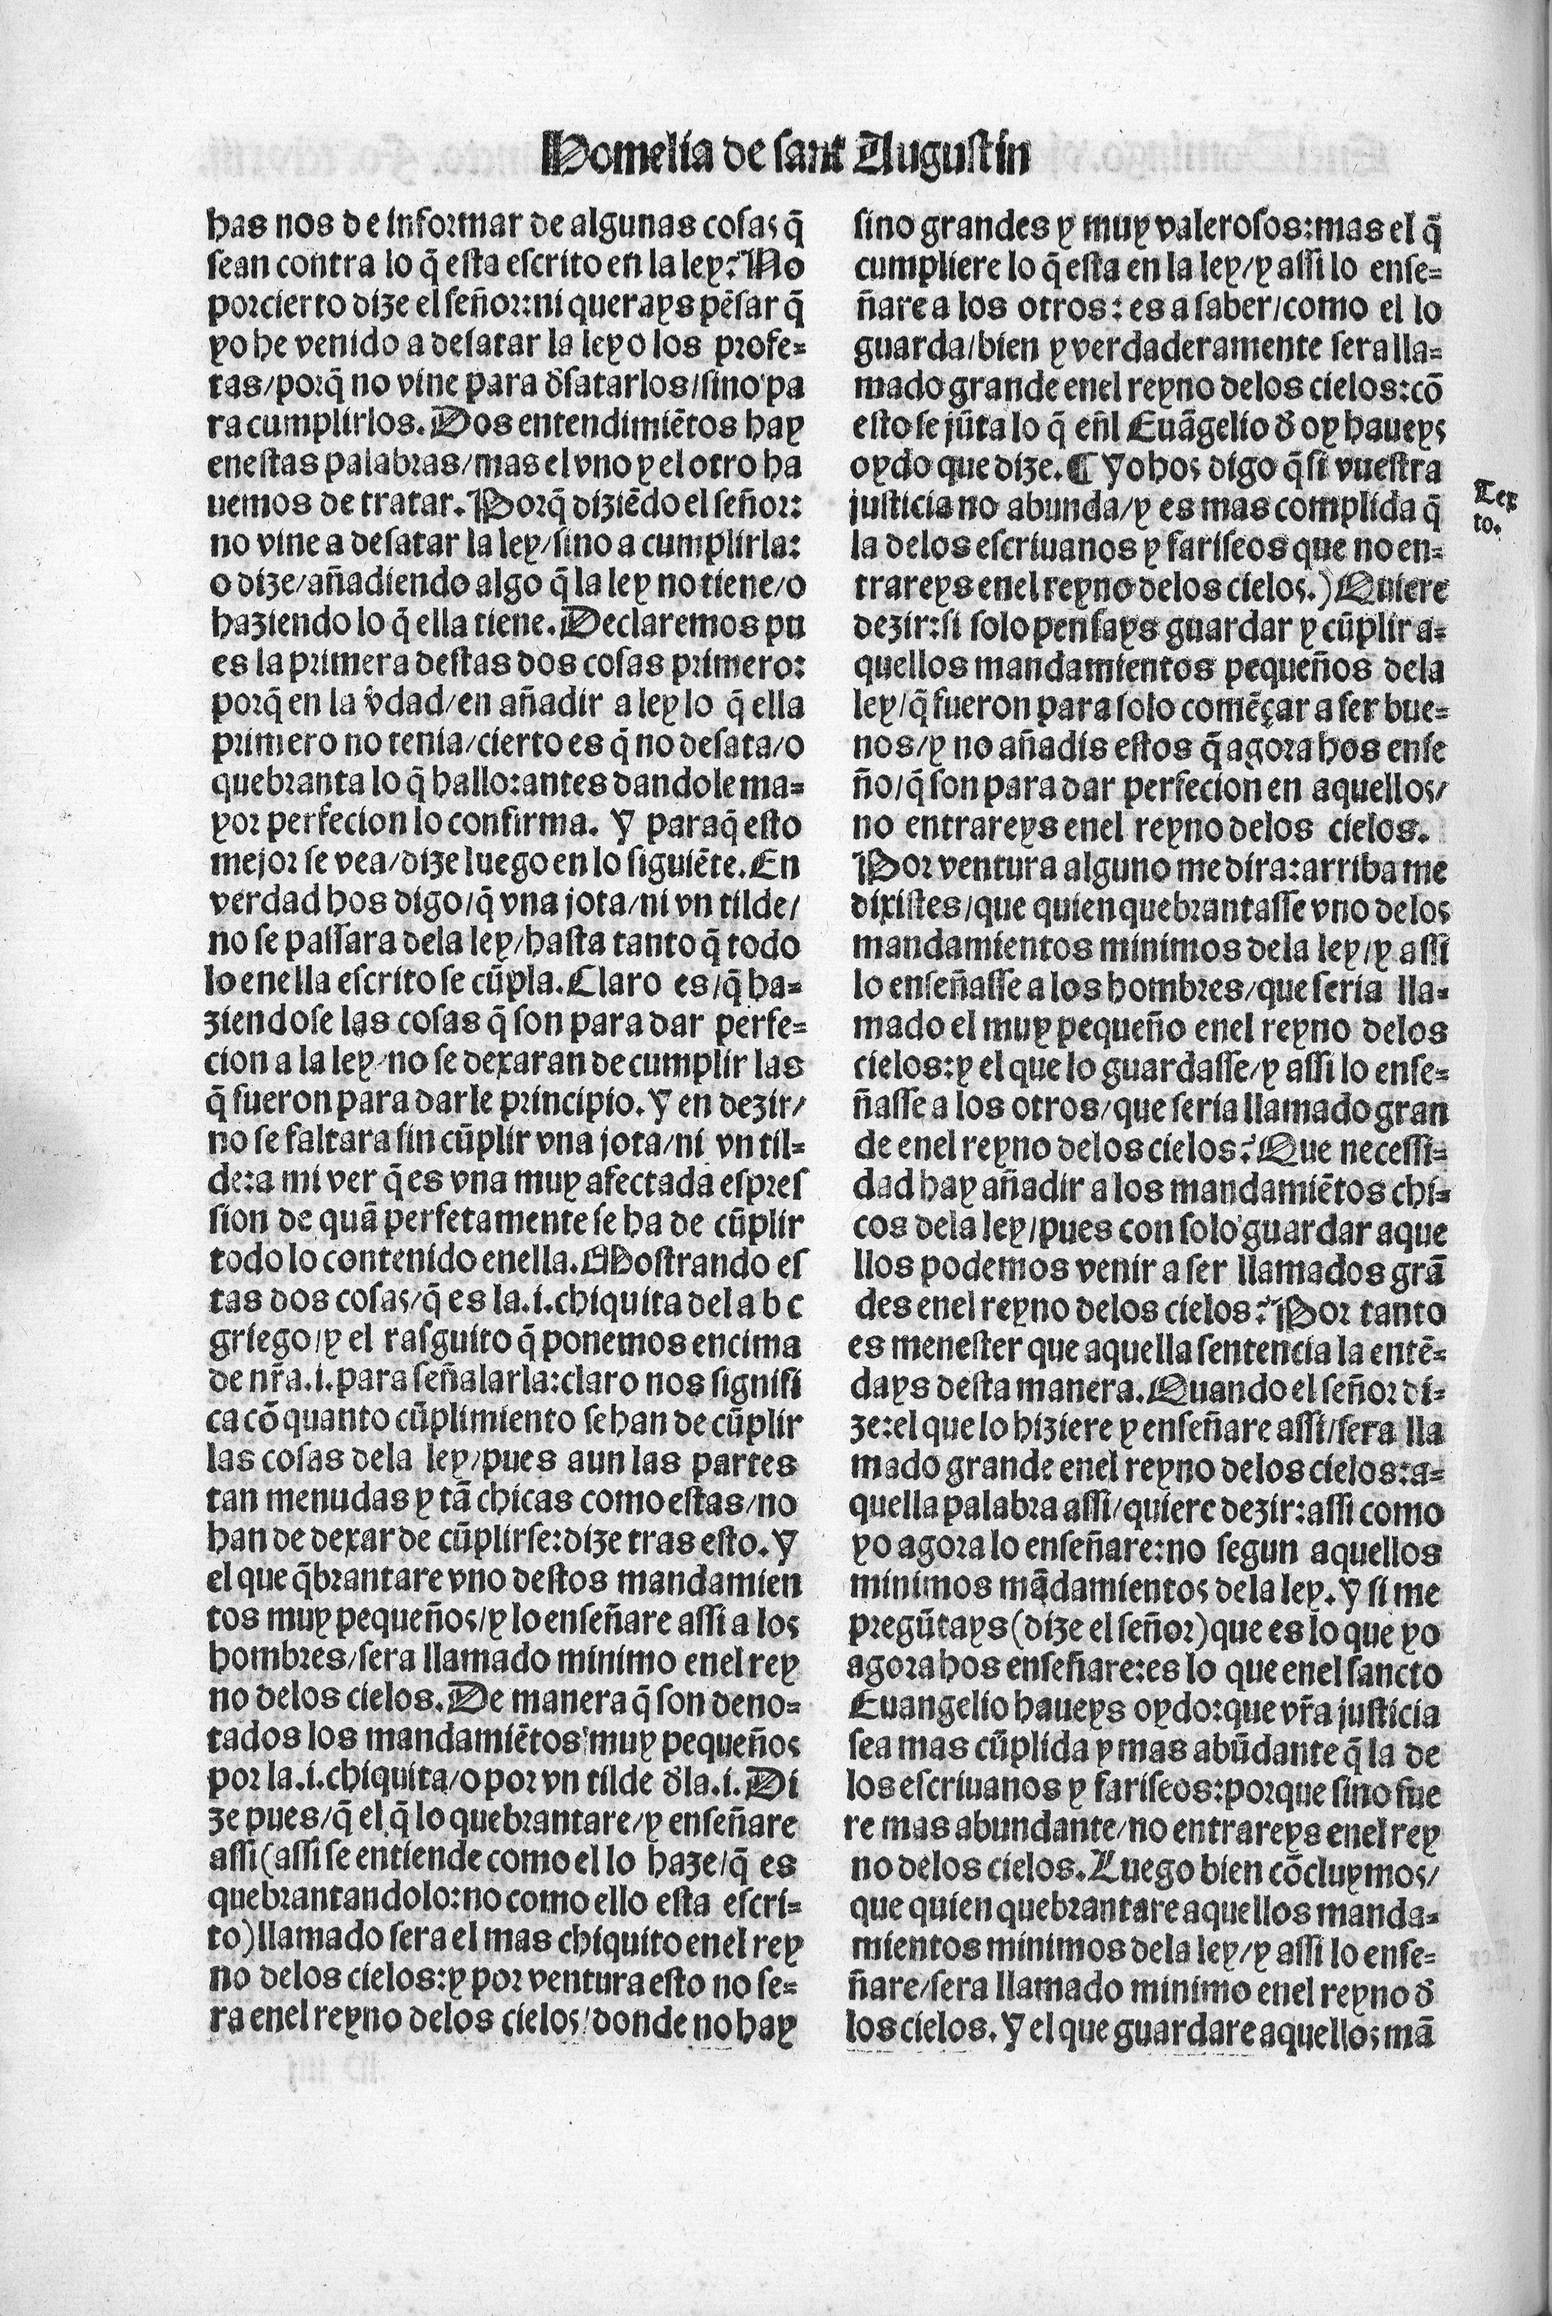 Homelia de sant Augustin
has nos de informar de algunas cosas q̃
sean contra lo q̃ esta escrito en la ley? No
porcierto dize el señor: ni querays pẽsar q̃
yo he venido a desatar la ley o los profe-
tas/porq̃ no vine para d̃satarlos/sino pa
ra cumplirlos. Dos entendimiẽtos hay
enestas palabras/mas el vno y el otro ha
uemos de tratar. Porq̃ diziẽdo el señor:
no vine a desatar la ley/sino a cumplirla:
o dize/añadiendo algo q̃ la ley no tiene/o
haziendo lo q̃ ella tiene. Declaremos pu
es la primera destas dos cosas primero:
porq̃ en la ṽdad/en añadir a ley lo q̃ ella
primero no tenia/cierto es q̃ no desata/o
quebranta lo q̃ hallo: antes dandole ma-
yor perfecion lo confirma. Y paraq̃ esto
mejor se vea/dize luego en lo siguiẽte. En
verdad hos digo/q̃ vna jota/ni vn tilde/
no se passara dela ley/hasta tanto q̃ todo
lo enella escrito se cũpla. Claro es/q̃ ha-
ziendose las cosas q̃ son para dar perfe-
cion a la ley/no se dexaran de cumplir las
q̃ fueron para darle principio. Y en dezir/
no se faltara sin cũplir vna jota/ni vn til-
de: a mi ver q̃ es vna muy afectada espres
sion de quã perfetamente se ha de cũplir
todo lo contenido enella. Mostrando es
tas dos cosas/q̃ es la .i. chiquita del a b c
griego/y el rasguito q̃ ponemos encima
de nr̃a .i. para señalarla: claro nos signifi
ca cõ quanto cũplimiento se han de cũplir
las cosas dela ley/pues aun las partes
tan menudas y tã chicas como estas/no
han de dexar de cũplirse: dize tras esto. Y
el que q̃brantare vno destos mandamien
tos muy pequeños/y lo enseñare assi a los
hombres/sera llamado minimo enel rey
no delos cielos. De manera q̃ son deno-
tados los mandamiẽtos muy pequeños
por la .i. chiquita/o por vn tilde d̃la .i. Di
ze pues/q̃ el q̃ lo quebrantare/y enseñare
assi (assi se entiende como el lo haze/q̃ es
quebrantandolo: no como ello esta escri-
to) llamado sera el mas chiquito enel rey
no delos cielos: y por ventura esto no se-
ra enel reyno delos cielos/donde no hay
sino grandes y muy valerosos: mas el q̃
cumpliere lo q̃ esta en la ley/y assi lo ense-
ñare a los otros: es a saber/como el lo
guarda/bien y verdaderamente sera lla-
mado grande enel reyno delos cielos: cõ
esto se jũta lo q̃ eñl Euãgelio d̃ oy haueys
oydo que dize. ¶ Yo hos digo q̃ si vuestra
justicia no abunda/y es mas complida q̃
la delos escriuanos y fariseos que no en-
trareys enel reyno delos cielos.) Quiere
dezir: si solo pensays guardar y cũplir a-
quellos mandamientos pequeños dela
ley/q̃ fueron para solo comẽçar a ser bue-
nos/y no añadis estos q̃ agora hos ense
ño/q̃ son para dar perfecion en aquellos/
no entrareys enel reyno delos cielos.
Por ventura alguno me dira: arriba me
dixistes/que quien quebrantasse vno delos
mandamientos minimos dela ley/y assi
lo enseñasse a los hombres/que seria lla-
mado el muy pequeño enel reyno delos
cielos: y el que lo guardasse/y assi lo ense-
ñasse a los otros/que seria llamado gran
de enel reyno delos cielos? Que necessi-
dad hay añadir a los mandamiẽtos chi-
cos dela ley/pues con solo guardar aque
llos podemos venir a ser llamados grã
des enel reyno delos cielos? Por tanto
es menester que aquella sentencia la entẽ-
days desta manera. Quando el señor di-
ze: el que lo hiziere y enseñare assi/sera lla
mado grande enel reyno delos cielos: a-
quella palabra assi/quiere dezir: assi como
yo agora lo enseñare: no segun aquellos
minimos mãdamientos dela ley. Y si me
pregũtays (dize el señor) que es lo que yo
agora hos enseñare: es lo que enel sancto
Euangelio haueys oydo: que vr̃a justicia
sea mas cũplida y mas abũdante q̃ la de
los escriuanos y fariseos: porque sino fue
re mas abundante/no entrareys enel rey
no delos cielos. Luego bien cõcluymos/
que quien quebrantare aquellos manda-
mientos minimos dela ley/y assi lo ense-
ñare/sera llamado minimo enel reyno d̃
los cielos. Y el que guardare aquellos mã
Tex
to.